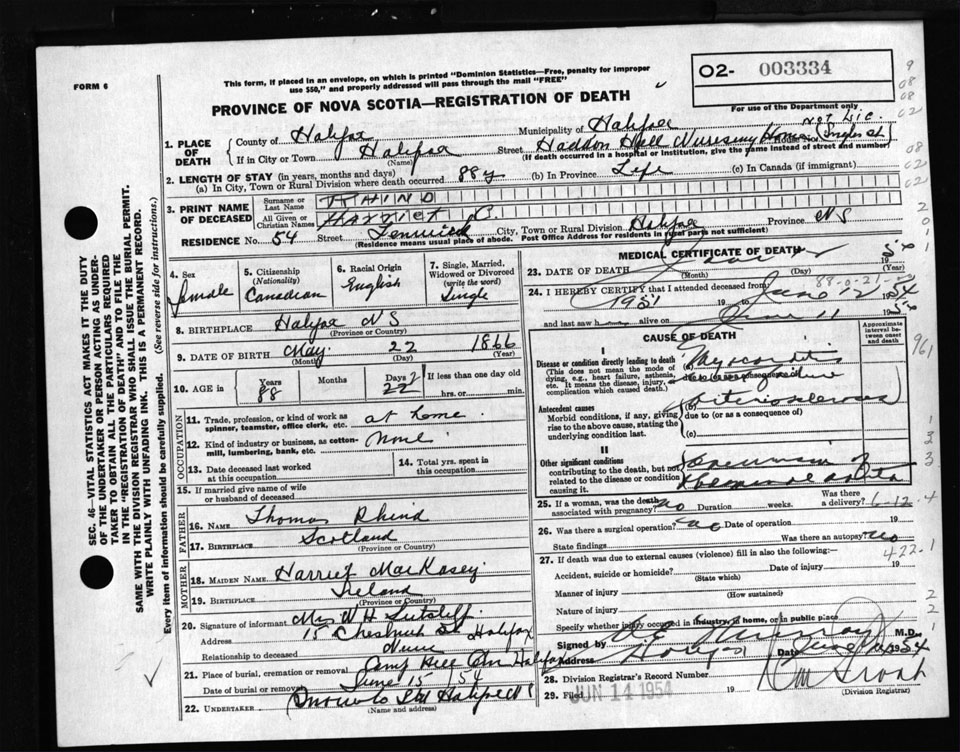 FORM 6
This form, if placed in an envelope, on which is printed "Dominion Statistics—Free, penalty for improper
use $50," and properly addressed will pass through the mail "FREE"
O2- 003334
For use of the Department only
PROVINCE OF NOVA SCOTIA—REGISTRATION OF DEATH
1. PLACE OF DEATH
County of Halifax Municipality of Halifax Not Lic.
If in City or Town Halifax Street Haddon Hall Nursing Home Inglis St
(Name) (If death occurred in a hospital or institution, give the name instead of street and number)
2. LENGTH OF STAY (in years, months and days)
(a) In City, Town or Rural Division where death occurred 88 y (b) In Province Life (c) In Canada (if immigrant)
3. PRINT NAME OF DECEASED
Surname or Last Name RHIND
All Given or Christian Names HARRIET C.
RESIDENCE No. 54 Street Fenwick City, Town or Rural Division Halifax Province NS
(Residence means usual place of abode. Post Office Address for residents in rural parts not sufficient)
4. Sex female
5. Citizenship (Nationality) Canadian
6. Racial Origin English
7. Single, Married, Widowed or Divorced (write the word) Single
8. BIRTHPLACE Halifax NS
(Province or Country)
9. DATE OF BIRTH May 22 1866
(Month) (Day) (Year)
10. AGE in Years 88 Months Days 22 If less than one day old
hrs. or min.
OCCUPATION
11. Trade, profession or kind of work as spinner, teamster, office clerk, etc. at home
12. Kind of industry or business, as cotton-mill, lumbering, bank, etc. None
13. Date deceased last worked at this occupation
14. Total yrs. spent in this occupation
15. If married give name of wife or husband of deceased
FATHER
16. NAME Thomas Rhind
17. BIRTHPLACE Scotland
(Province or Country)
MOTHER
18. MAIDEN NAME Harriet MacKasey
19. BIRTHPLACE Ireland
(Province or Country)
20. Signature of informant Mrs W H
Address 15 Chestnut St Halifax
Relationship to deceased
21. Place of burial, cremation or removal Camp Hill Halifax
Date of burial or removal June 15 / 54
22. UNDERTAKER Snow Halifax NS
(Name and address)
MEDICAL CERTIFICATE OF DEATH
23. DATE OF DEATH 19
(Month) (Day) (Year)
24. I HEREBY CERTIFY that I attended deceased from
1951 to June 12 1954
and last saw h alive on June 11 19
CAUSE OF DEATH
Approximate interval between onset and death
I
Disease or condition directly leading to death (a) Myocarditis
(This does not mean the mode of dying, e.g., heart failure, asthenia, etc. It means the disease, injury, or complication which caused death.)
due to (or as a consequence of)
Antecedent causes
Morbid conditions, if any, giving rise to the above cause, stating the underlying condition last.
(b) Arteriosclerosis
due to (or as a consequence of)
(c)
II
Other significant conditions
contributing to the death, but not related to the disease or condition causing it.
25. If a woman, was the death associated with pregnancy? no Duration weeks. Was there a delivery?
26. Was there a surgical operation? no Date of operation 19
State findings Was there an autopsy? no
27. If death was due to external causes (violence) fill in also the following:—
Accident, suicide or homicide? Date of injury 19
(State which)
Manner of injury
(How sustained)
Nature of injury
Specify whether injury occurred in industry, in home, or in public place
Signed by M.D.
Address Date June 1954
28. Division Registrar's Record Number
29. Filed JUN 14 1954 19
(Division Registrar)
SEC. 46—VITAL STATISTICS ACT MAKES IT THE DUTY
OF THE UNDERTAKER OR PERSON ACTING AS UNDER-
TAKER TO OBTAIN ALL THE PARTICULARS REQUIRED
IN THE "REGISTRATION OF DEATH" AND TO FILE THE
SAME WITH THE DIVISION REGISTRAR WHO SHALL ISSUE THE BURIAL PERMIT.
WRITE PLAINLY WITH UNFADING INK. THIS IS A PERMANENT RECORD.
Every item of information should be carefully supplied. (See reverse side for instructions.)